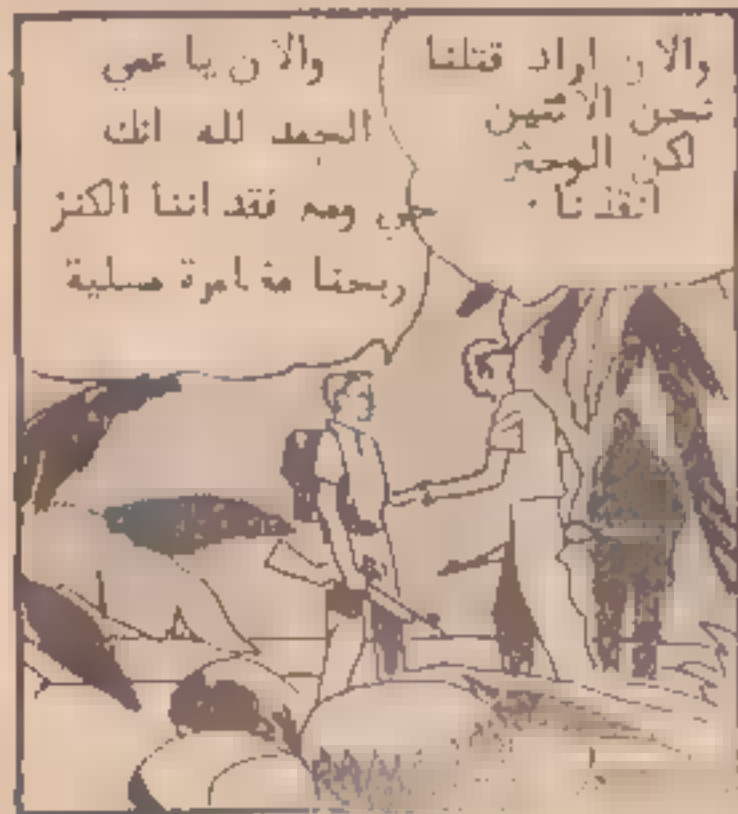 والان اراد قتلنا
نحن الاثنين
لكن الوحش
انقذنا .
والان يا عمي
الحمد لله انك
حي ومع فقداننا الكنز
ربحنا مغامرة مسلية